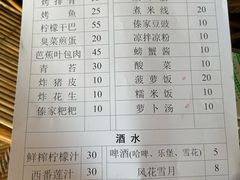 烤排骨
烤鱼 55 煮米线 20
柠檬干巴 55 傣家豆豉 20
臭菜煎蛋 20 凉拌凉粉 20
芭蕉叶包肉 45 螃蟹酱 20
青苔 30 酸木瓜 10
炸猪皮 10 菠萝饭 20
炸花生 10 糯米饭 10
傣家粑粑 10 萝卜汤 10
酒水
鲜榨柠檬汁 30 啤酒(哈啤、乐堡、雪花) 5
西番莲汁 30 风花雪月 8